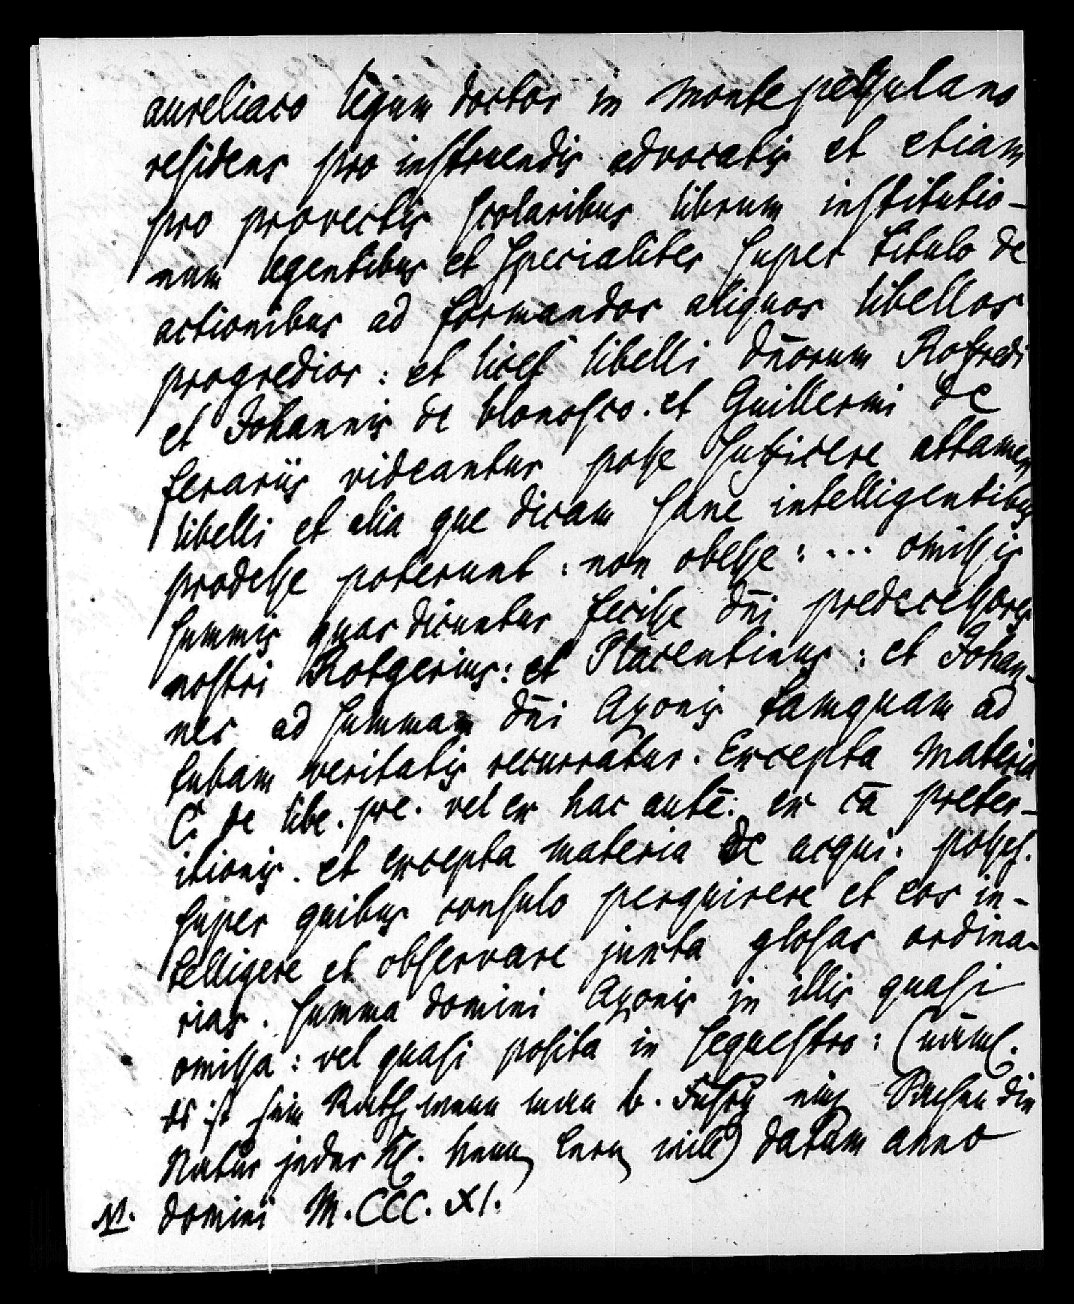 aureliaco legum doctor in montepessulano
residens pro instruendis advocatis et etiam
pro provectis scolaribus librum institutio-
num legentibus et specialiter super titulo de
actionibus ad formandos aliquos libellos
progredior: et licet libelli dñorum Rofredi
et Johannis de blonosco. et Guillermi de
ferariis videantur posse sufficere attamen
libelli et alia que dicam sane intelligentibus
prodesse poterunt: non obesse: ... omissis
summis quas dicuntur fecisse dñi predecessores
nostri Rotgerius: et Placentinus: et Johan-
nes ad summam dñi Azonis tamquam ad
tubam veritatis recurratur. Excepta materia
C. de libe. pre. vel ex hac autē. ex cā preter-
itionis. et excepta materia de acqui. posses.
super quibus consulo perquirere et eos in-
telligere et observare juxta glosas ordina-
rias. summa domini Azonis in illis quasi
omissa: vel quasi posita in sequestro: (näml.
es ist sein Rath wenn man b. eine Sachen die
Natur jeder Kl. kennen lernen will) datum anno
N. domini M.CCC.XI.